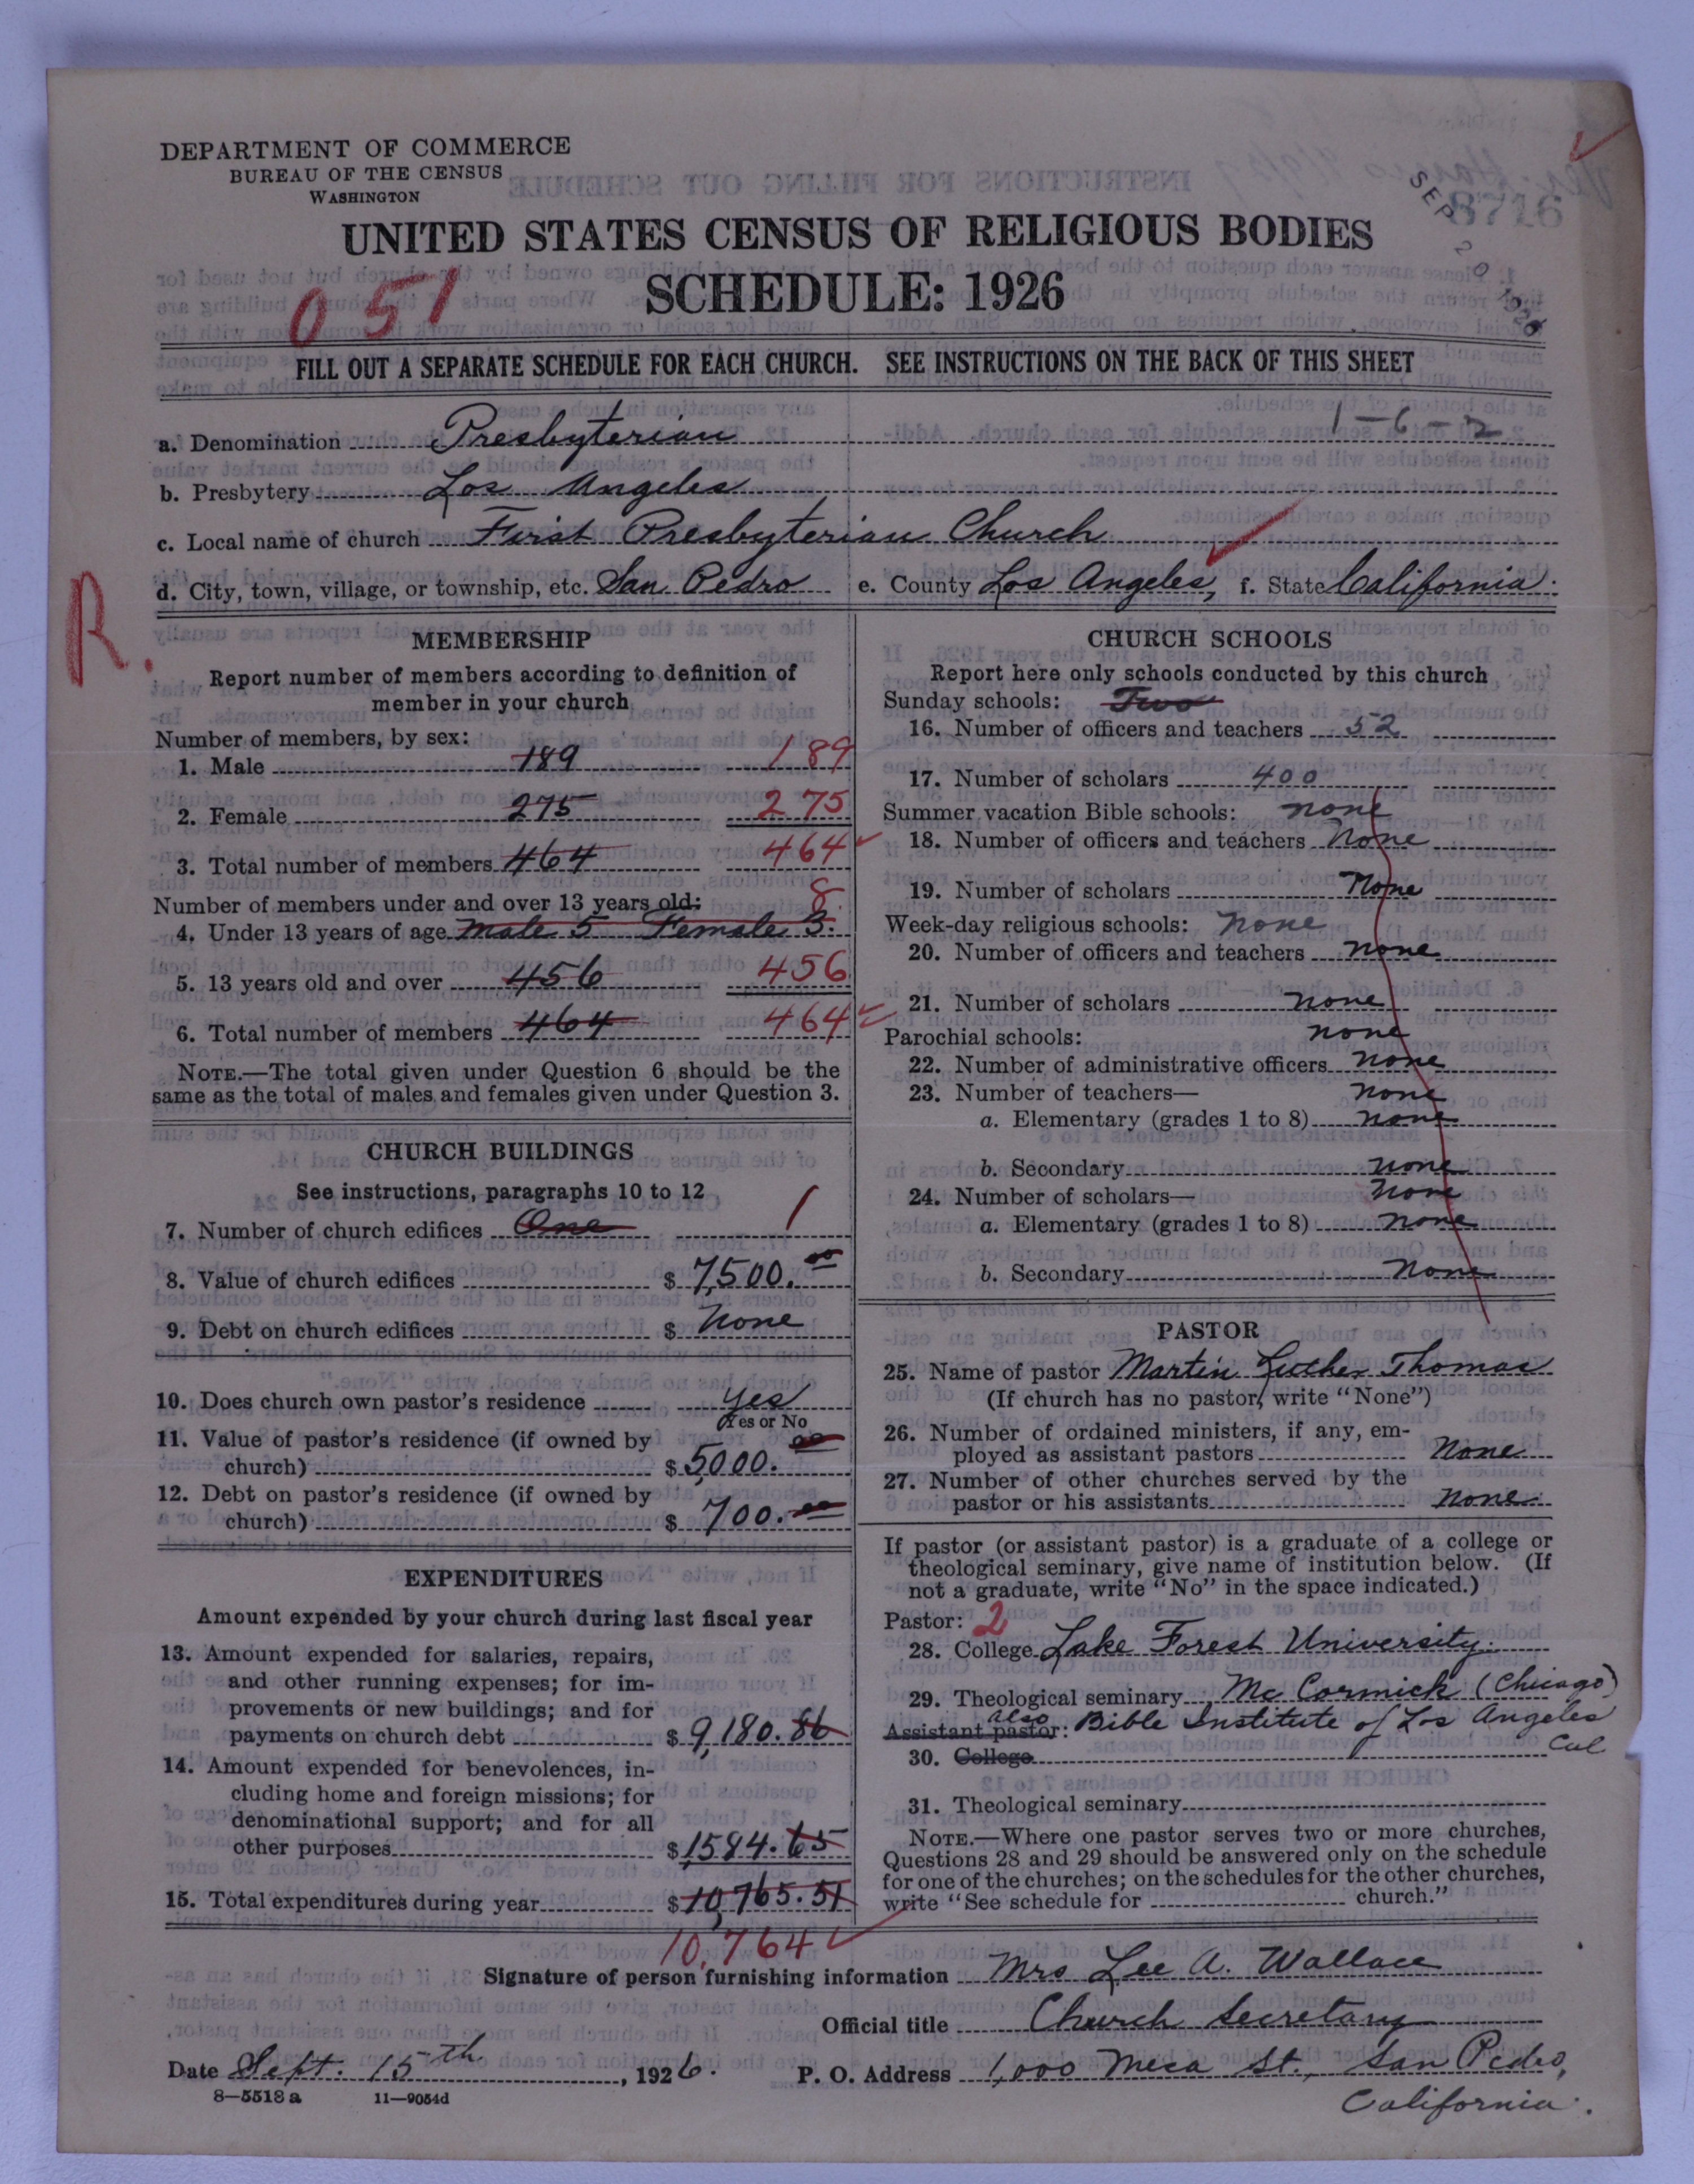 DEPARTMENT OF COMMERCE
BUREAU OF THE CENSUS
WASHINGTON
8716
SEP 20 1926
UNITED STATES CENSUS OF RELIGIOUS BODIES
SCHEDULE: 1926
051
FILL OUT A SEPARATE SCHEDULE FOR EACH CHURCH. SEE INSTRUCTIONS ON THE BACK OF THIS SHEET
a. Denomination Presbyterian 1-6-2
b. Presbytery Los Angeles
c. Local name of church First Presbyterian Church
d. City, town, village, or township, etc. San Pedro e. County Los Angeles, f. State California.
R.
MEMBERSHIP
Report number of members according to definition of
member in your church
Number of members, by sex:
1. Male 189 189
2. Female 275 275
3. Total number of members 464 464
Number of members under and over 13 years old: 8
4. Under 13 years of age Male 5 Female 3.
5. 13 years old and over 456 456
6. Total number of members 464 464
NOTE.—The total given under Question 6 should be the
same as the total of males and females given under Question 3.
CHURCH BUILDINGS
See instructions, paragraphs 10 to 12
7. Number of church edifices One 1
8. Value of church edifices $ 7,500.00
9. Debt on church edifices $ None
10. Does church own pastor's residence Yes
Yes or No
11. Value of pastor's residence (if owned by
church) $ 5,000.00
12. Debt on pastor's residence (if owned by
church) $ 700.00
EXPENDITURES
Amount expended by your church during last fiscal year
13. Amount expended for salaries, repairs,
and other running expenses; for im-
provements or new buildings; and for
payments on church debt $ 9,180.86
14. Amount expended for benevolences, in-
cluding home and foreign missions; for
denominational support; and for all
other purposes $ 1,584.65
15. Total expenditures during year $ 10,765.51
10,764
CHURCH SCHOOLS
Report here only schools conducted by this church
Sunday schools: Two
16. Number of officers and teachers 52
17. Number of scholars 400
Summer vacation Bible schools: none
18. Number of officers and teachers None
19. Number of scholars None
Week-day religious schools: none
20. Number of officers and teachers none
21. Number of scholars none
Parochial schools: none
22. Number of administrative officers none
23. Number of teachers— none
a. Elementary (grades 1 to 8) none
b. Secondary none
24. Number of scholars— none
a. Elementary (grades 1 to 8) none
b. Secondary none
PASTOR
25. Name of pastor Martin Luther Thomas
(If church has no pastor, write "None")
26. Number of ordained ministers, if any, em-
ployed as assistant pastors None
27. Number of other churches served by the
pastor or his assistants None.
If pastor (or assistant pastor) is a graduate of a college or
theological seminary, give name of institution below. (If
not a graduate, write "No" in the space indicated.)
Pastor: 2
28. College Lake Forest University.
29. Theological seminary Mc Cormick (Chicago)
also
Assistant pastor: Bible Institute of Los Angeles
Cal
30. College
31. Theological seminary
NOTE.—Where one pastor serves two or more churches,
Questions 28 and 29 should be answered only on the schedule
for one of the churches; on the schedules for the other churches,
write "See schedule for church."
Signature of person furnishing information Mrs Lee A. Wallace
Official title Church Secretary
Date Sept. 15th, 1926. P. O. Address 1,000 Mesa St., San Pedro,
California.
8—5518 a 11—9054d